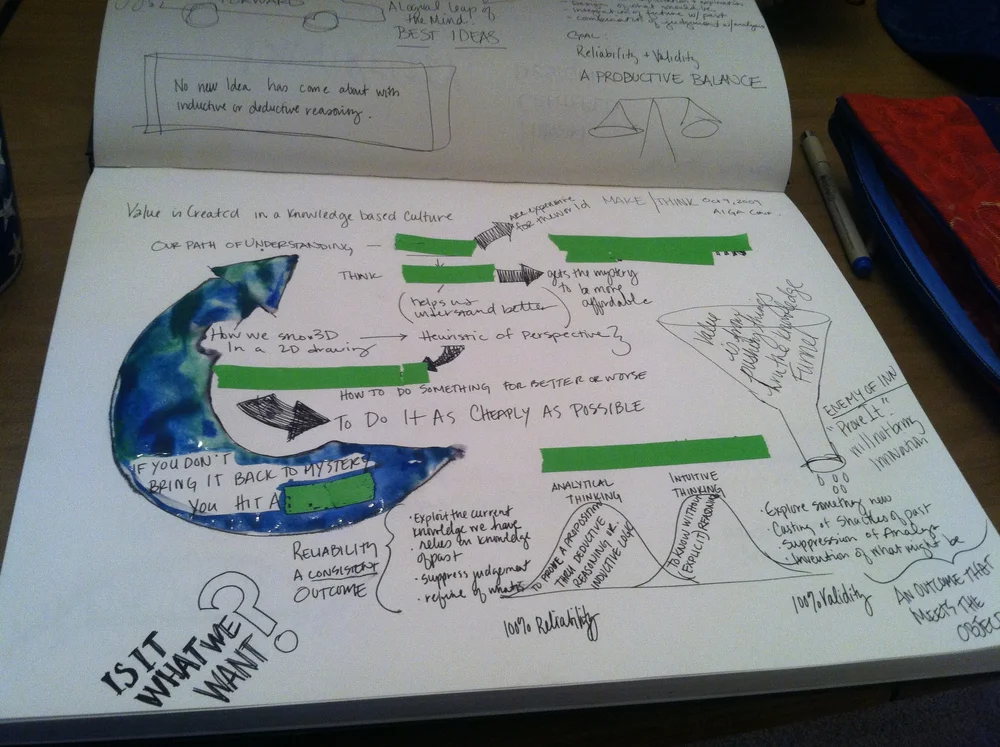 FORWARD
A Logical Leap of
the Mind!
BEST IDEAS
No new Idea has come about with
inductive or deductive reasoning.
GOAL:
Reliability + Validity
A PRODUCTIVE BALANCE
MAKE/THINK Oct 9, 2009
AIGA Conf.
Value is Created in a Knowledge based Culture
OUR PATH OF UNDERSTANDING —
are expensive
for the world
THINK
gets the mystery
to be more
affordable
(helps us
understand better)
How we show 3D
In a 2D drawing
Heuristic of Perspective }
HOW TO DO SOMETHING FOR BETTER OR WORSE
TO DO IT AS CHEAPLY AS POSSIBLE
Value
is
pushing things
thru the knowledge
Funnel
ENEMY OF INN
"Prove It"
will not bring
Innovation
IF YOU DON'T
BRING IT BACK TO MYSTERY
YOU HIT A
RELIABILITY
A CONSISTENT
OUTCOME
• Exploit the current
knowledge we have
• relies on knowledge
of past
• suppress judgement
• refine of what is
ANALYTICAL
THINKING
TO PROVE A PROPOSITION
THRU DEDUCTIVE
REASONING OR
INDUCTIVE LOGIC
INTUITIVE
THINKING
TO KNOW WITHOUT
(EXPLICIT) REASONING
100% Reliability
100% Validity
• Explore something new
• Casting of Shackles of past
• suppression of Analyze
• Invention of what might be
AN OUTCOME THAT
MEETS THE
OBJEC
IS IT
WHAT WE
WANT?